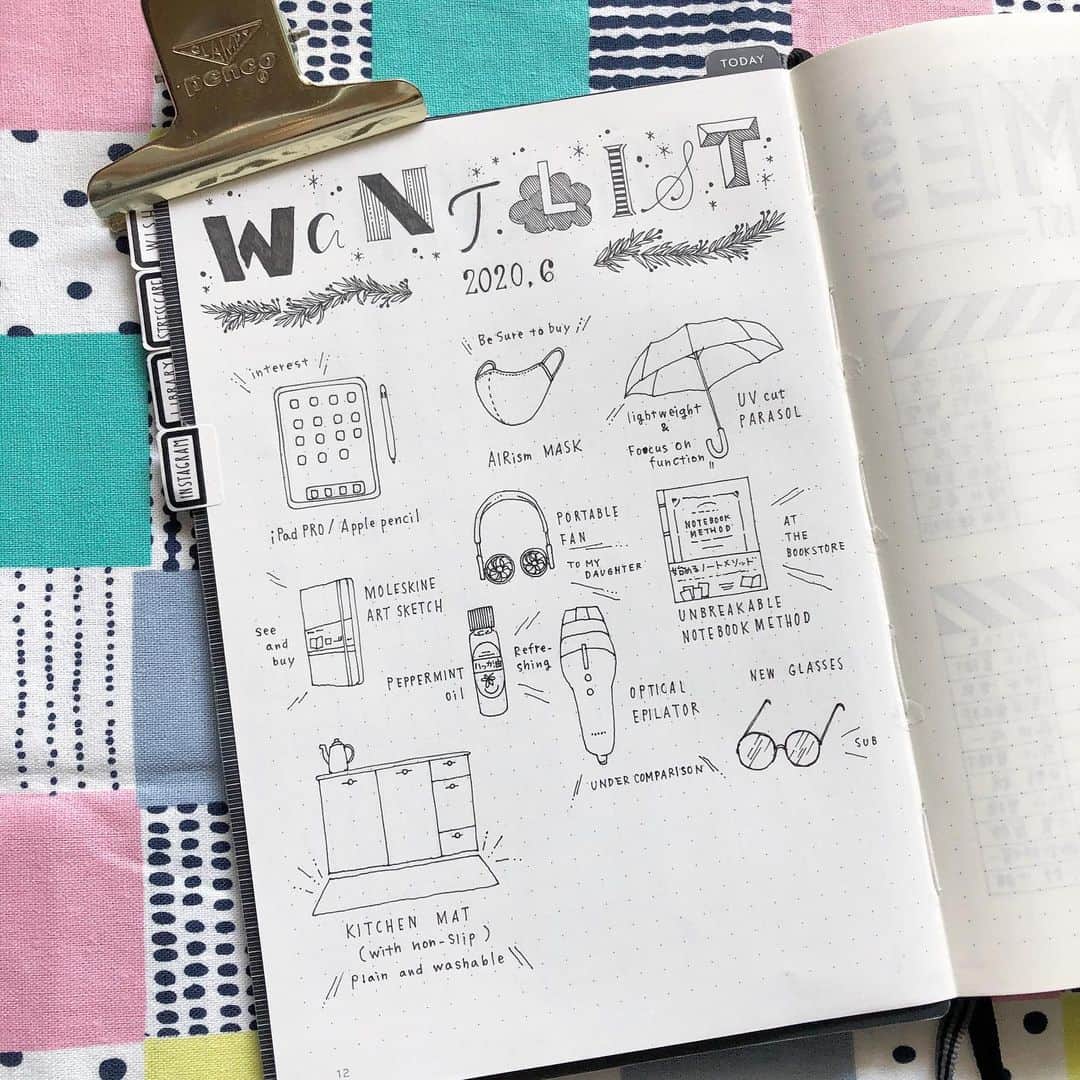 CLAMPY
penco
TODAY
WaNT. LIST
2020.6
WISH
STRESSCARE
LIBRARY
INSTAGRAM
interest
iPad PRO / Apple pencil
Be Sure to buy
AIRism MASK
lightweight
&
Focus on
function
UV cut
PARASOL
MOLESKINE
ART SKETCH
see
and
buy
PORTABLE
FAN
TO MY
DAUGHTER
NOTEBOOK
METHOD
ノートメソッド
AT
THE
BOOKSTORE
UNBREAKABLE
NOTEBOOK METHOD
PEPPERMINT
oil
ハッカ油
Refre-
shing
OPTICAL
EPILATOR
UNDER COMPARISON
NEW GLASSES
SUB
KITCHEN MAT
(with non-slip)
plain and washable
12